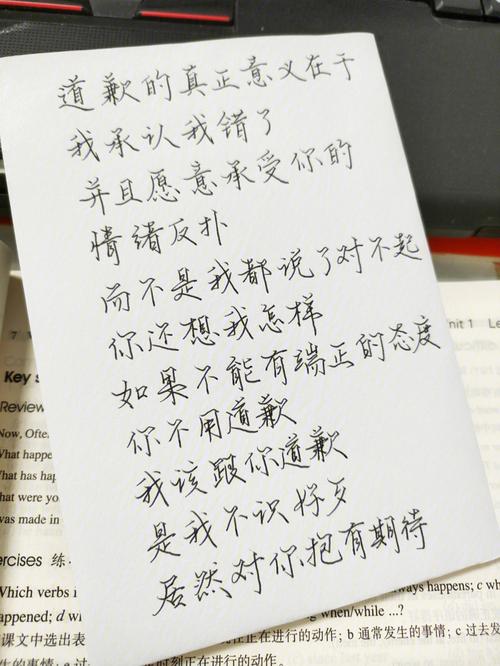 道歉的真正意义在于
我承认我错了
并且愿意承受你的
情绪反扑
而不是我都说了对不起
你还想我怎样
如果不能有端正的态度
你不用道歉
我该跟你道歉
是我不识好歹
居然对你抱有期待
7
Unit 1 Le
Key s
Review
Now, Ofte
What happe
What has hap
what were you
was made in
ercises 练
Which verbs i
lways happens; c wha
ppened; d wh
ing when/while ...?
课文中选出表
在正在进行的动作; b 通常发生的事情; c 过去发
时刻正在进行的动作